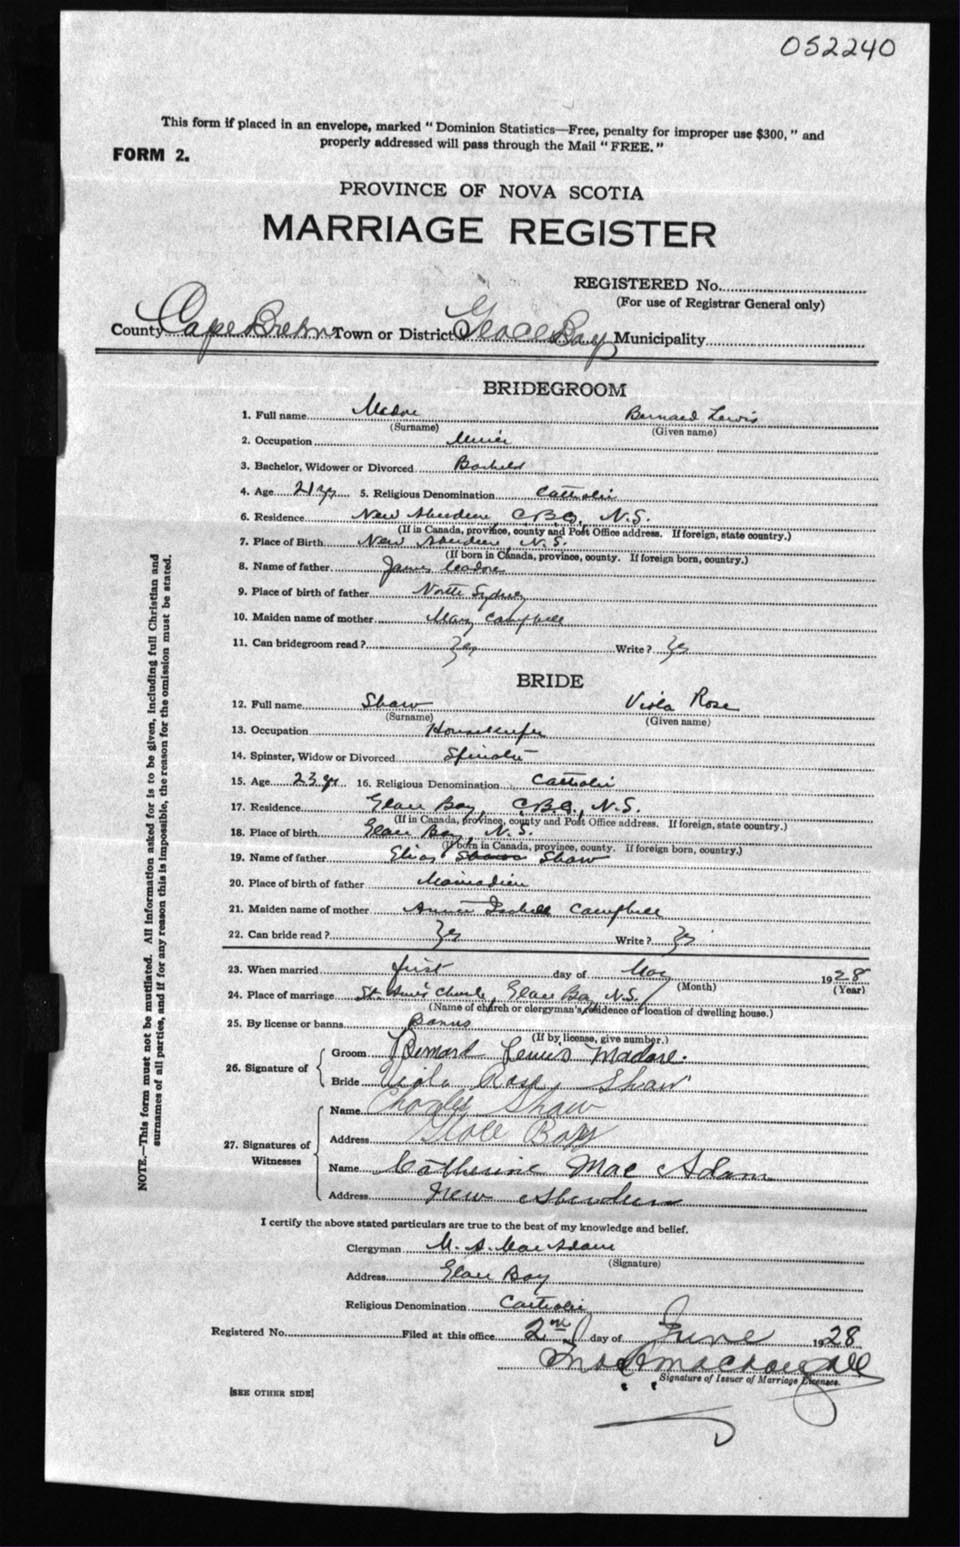 052240
This form if placed in an envelope, marked "Dominion Statistics—Free, penalty for improper use $300," and
properly addressed will pass through the Mail "FREE."
FORM 2.
PROVINCE OF NOVA SCOTIA
MARRIAGE REGISTER
REGISTERED No.
(For use of Registrar General only)
County Cape Breton Town or District Glace Bay Municipality
BRIDEGROOM
1. Full name Madore Bernard Lewis
(Surname) (Given name)
2. Occupation Miner
3. Bachelor, Widower or Divorced Bachelor
4. Age 21 yr 5. Religious Denomination Catholic
6. Residence New Aberdeen C.B.Co, N.S.
(If in Canada, province, county and Post Office address. If foreign, state country.)
7. Place of Birth New Aberdeen, N.S.
(If born in Canada, province, county. If foreign born, country.)
8. Name of father James Madore
9. Place of birth of father North Sydney
10. Maiden name of mother Mary Campbell
11. Can bridegroom read? Yes Write? Yes
BRIDE
12. Full name Shaw Viola Rose
(Surname) (Given name)
13. Occupation Housekeeper
14. Spinster, Widow or Divorced Spinster
15. Age 23 yr 16. Religious Denomination Catholic
17. Residence Glace Bay, C.B.Co., N.S.
(If in Canada, province, county and Post Office address. If foreign, state country.)
18. Place of birth Glace Bay, N.S.
(If born in Canada, province, county. If foreign born, country.)
19. Name of father Elias Shaw
20. Place of birth of father Mainadieu
21. Maiden name of mother Annie Isabell Campbell
22. Can bride read? Yes Write? Yes
23. When married first day of May 1928
(Month) (Year)
24. Place of marriage St. Ann's Church, Glace Bay, N.S.
(Name of church or clergyman's residence or location of dwelling house.)
25. By license or banns Banns
(If by license, give number.)
26. Signature of
Groom Bernard Lewis Madore.
Bride Viola Rose Shaw
27. Signatures of Witnesses
Name Charles Shaw
Address Glace Bay
Name Catherine Mac Adam
Address New Aberdeen
I certify the above stated particulars are true to the best of my knowledge and belief.
Clergyman M. A. MacAdam
(Signature)
Address Glace Bay
Religious Denomination Catholic
Registered No. Filed at this office 2nd day of June 1928
Signature of Issuer of Marriage Licenses.
[SEE OTHER SIDE]
NOTE.—This form must not be mutilated. All information asked for is to be given, including full Christian and
surnames of all parties, and if for any reason this is impossible, the reason for the omission must be stated.